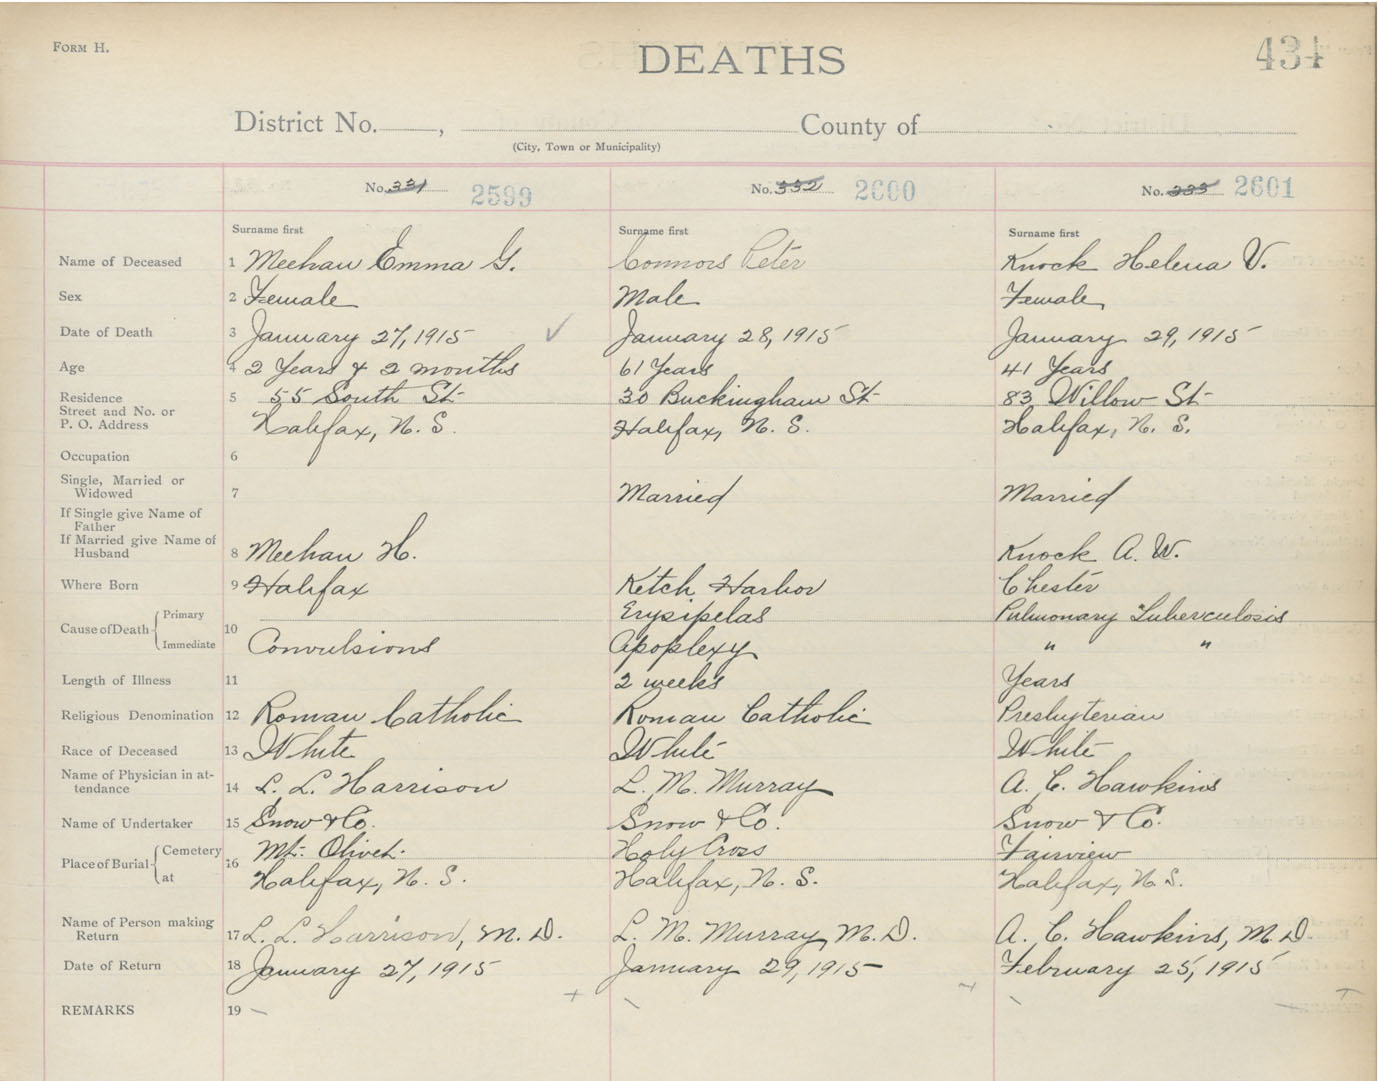 FORM H.
DEATHS
434
District No. , County of
(City, Town or Municipality)
No. 331 2599 No. 332 2600 No. 333 2601
Surname first Surname first Surname first
Name of Deceased 1 Meehan Emma G. Connors Peter Knock Helena V.
Sex 2 Female Male Female
Date of Death 3 January 27, 1915 January 28, 1915 January 29, 1915
Age 4 2 Years & 2 months 61 Years 41 Years
Residence 5 55 South St 30 Buckingham St 83 Willow St
Street and No. or
P. O. Address Halifax, N. S. Halifax, N. S. Halifax, N. S.
Occupation 6
Single, Married or
Widowed 7 Married Married
If Single give Name of
Father
If Married give Name of
Husband 8 Meehan H. Knock A. W.
Where Born 9 Halifax Ketch Harbor Chester
Cause of Death Primary 10 Erysipelas Pulmonary Tuberculosis
Immediate Convulsions Apoplexy " "
Length of Illness 11 2 weeks Years
Religious Denomination 12 Roman Catholic Roman Catholic Presbyterian
Race of Deceased 13 White White White
Name of Physician in at-
tendance 14 L. L. Harrison L. M. Murray A. C. Hawkins
Name of Undertaker 15 Snow & Co. Snow & Co. Snow & Co.
Place of Burial Cemetery 16 Mt. Olivet. Holy Cross Fairview
at Halifax, N. S. Halifax, N. S. Halifax, N. S.
Name of Person making
Return 17 L. L. Harrison, M. D. L. M. Murray, M. D. A. C. Hawkins, M. D.
Date of Return 18 January 27, 1915 January 29, 1915 February 25, 1915
REMARKS 19